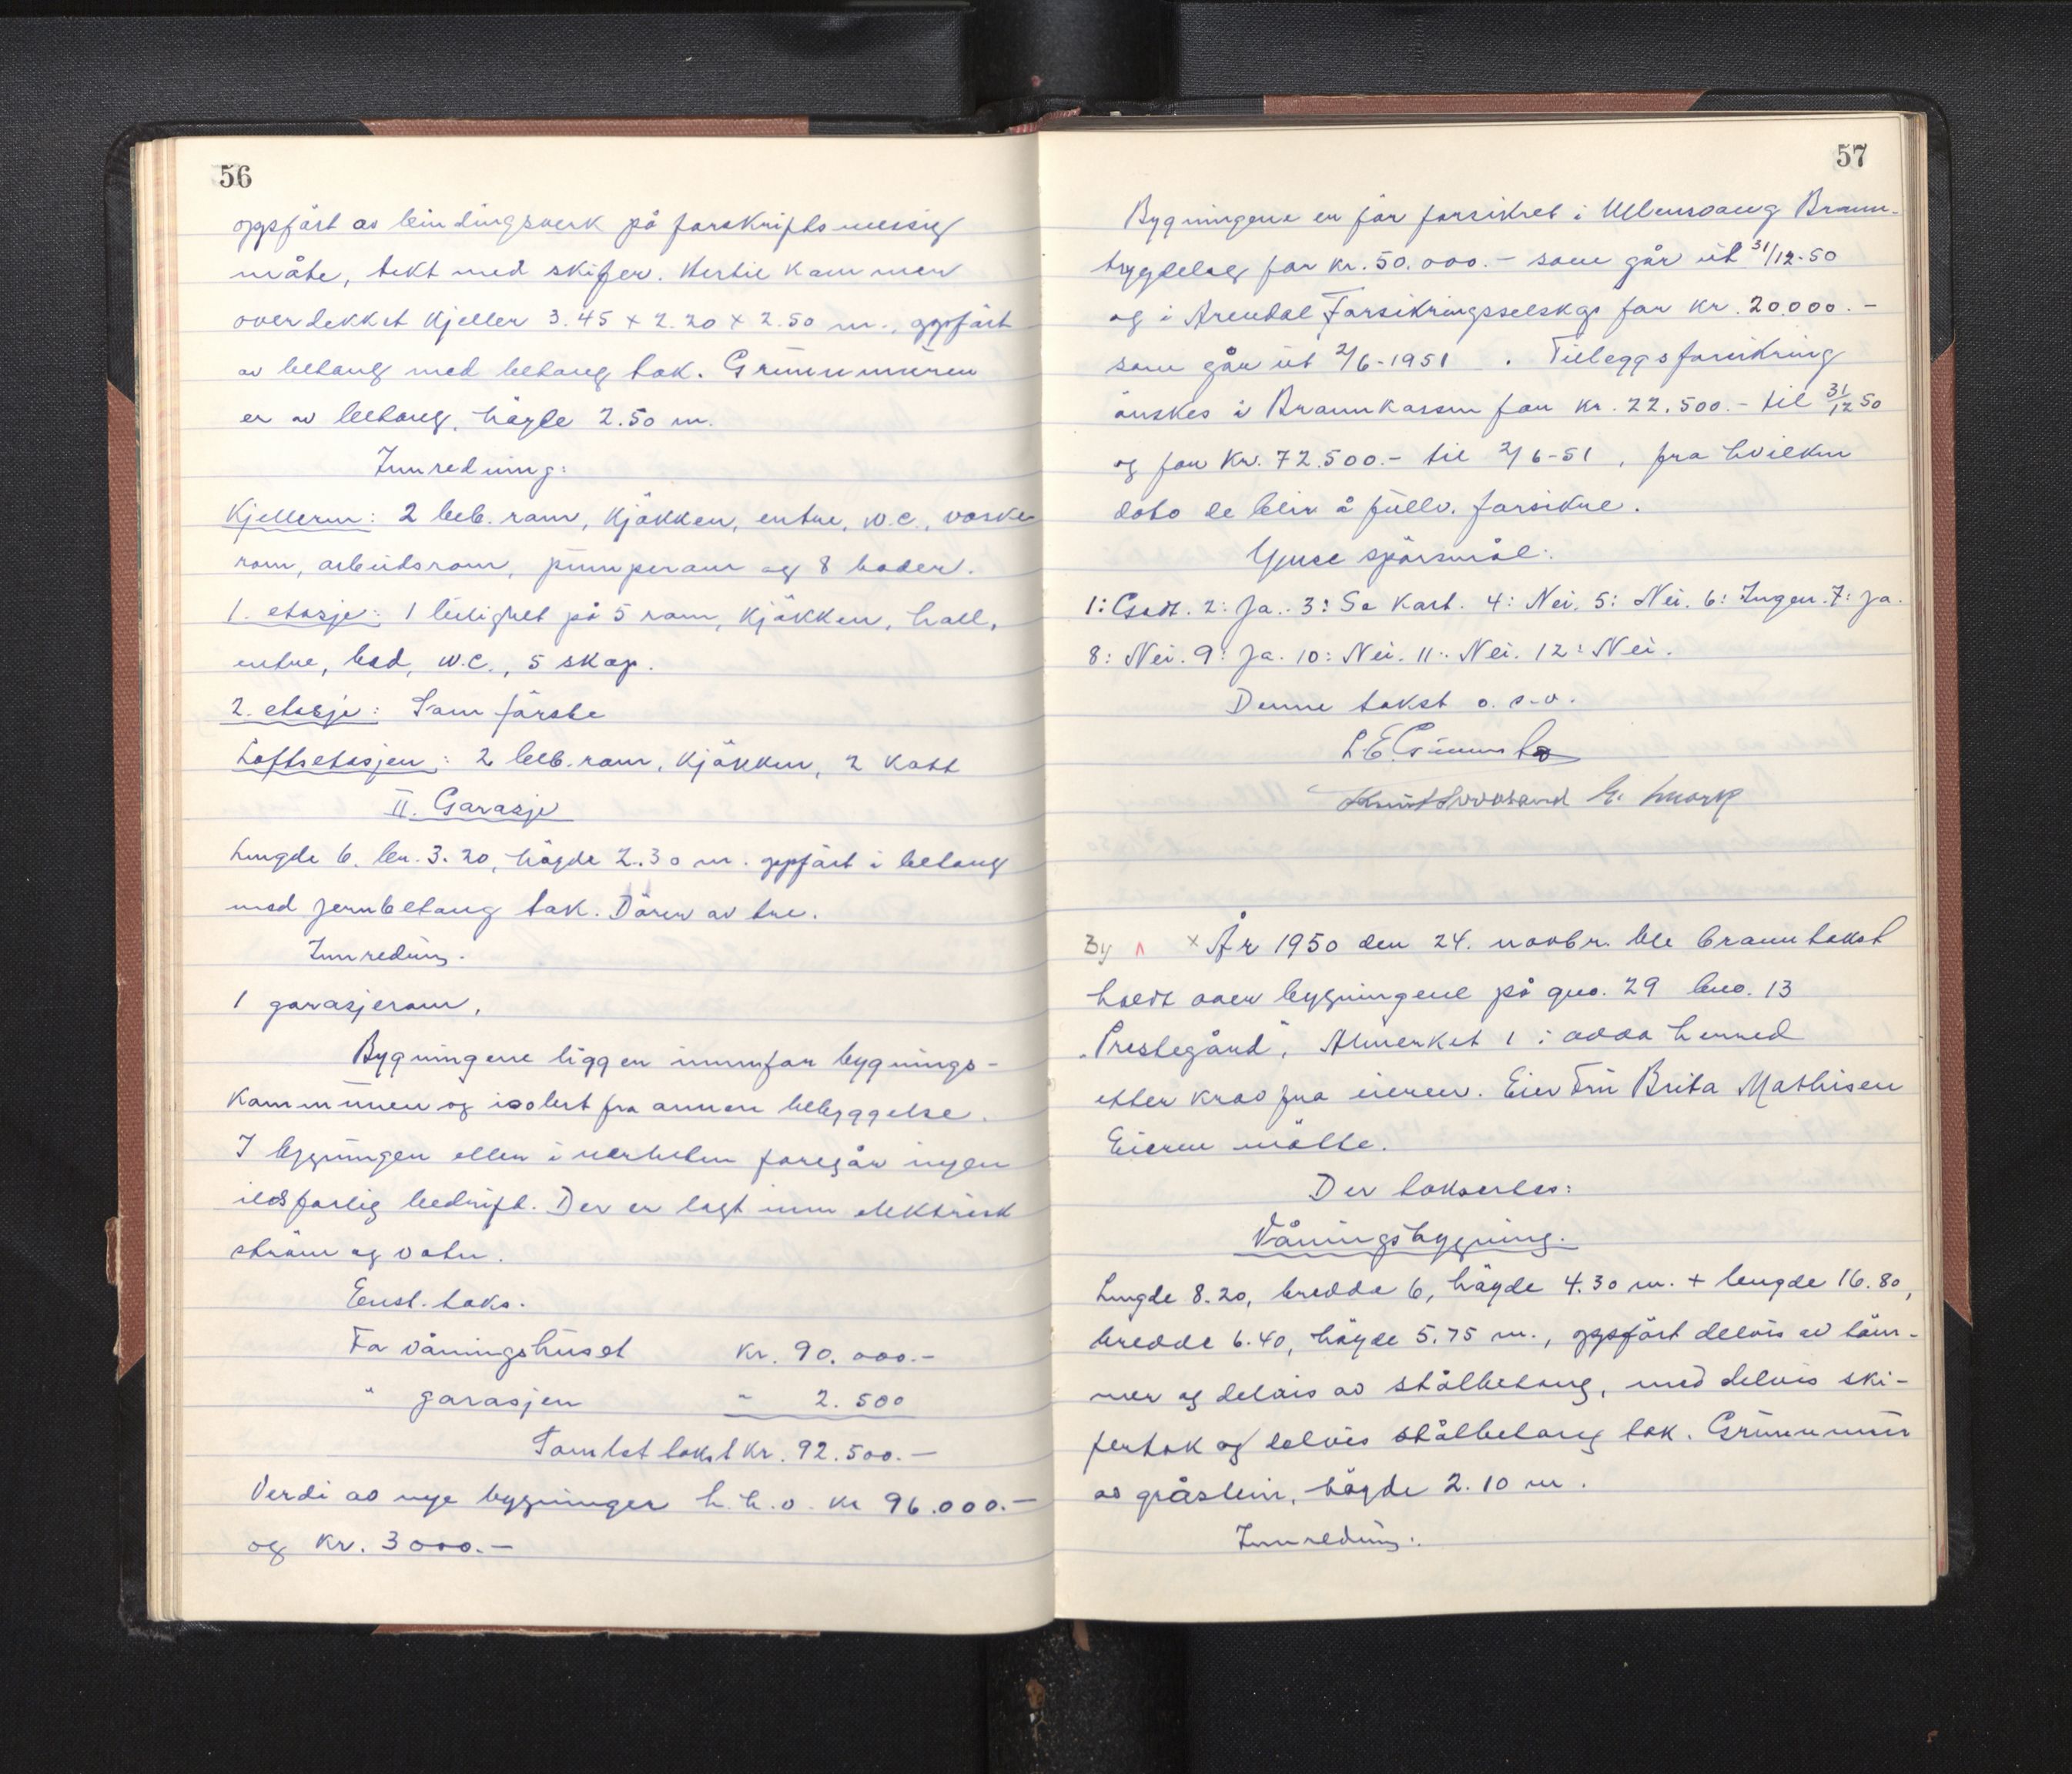 56
oppfört av bindingsverk på forskriftsmessig
måte, tekt med skifer. Hertil kommer
overdekket kjeller 3.45 x 2.20 x 2.50 m., oppfört
av betong med betong tak. Grunnmuren
er av betong, högde 2.50 m.
Innredning:
Kjelleren: 2 beb. rom, kjökken, entre, w.c., vaske
rom, arbeidsrom, pumperom og 8 boder.
1. etasje: 1 leilighet på 5 rom, kjökken, hall,
entre, bad, w.c., 5 skap.
2. etasje: Som förste
Loftsetasjen: 2 beb. rom, kjökken, 2 kott
II. Garasje
Lengde 6. br. 3.20, högde 2.30 m. oppfört i betong
med jernbetong tak. Dörer av tre.
Innredning.
1 garasjerom.
Bygningene ligger innenfor bygnings-
kommunen og isolert fra annen bebyggelse.
I bygningen eller i nerheten foregår ingen
ildsfarlig bedrift. Der er lagt inn elektrisk
ström og vatn.
Enst. taks.
For våningshuset kr. 90.000.-
" garasjen " 2.500
Samlet takst kr. 92.500.-
Verdi av nye bygninger h.h.v. kr 96.000.-
og kr. 3000.-
57
Bygningene er för forsikret i Ullensvang Brann-
trygdelag for kr. 50.000.- som går ut 31/12-50
og i Arendal Forsikringsselskap for kr. 20.000.-
som går ut 2/6-1951. Tilleggsforsikring
önskes i Brannkassen for kr. 22.500.- til 31/12 50
og for kr. 72.500.- til 2/6-51, fra hvilken
dato de blir å fullv. forsikre.
Ymse spörsmål:
1: Godt. 2: Ja. 3: Se kart. 4: Nei. 5: Nei. 6: Ingen. 7: Ja.
8: Nei. 9: Ja. 10: Nei. 11: Nei. 12: Nei.
Denne takst o.s.v.
L.E.
Knut
By x År 1950 den 24. novbr. ble branntakst
holdt over bygningene på gno. 29 bno. 13
"Prestegård", Almerket 1 i Odda herred
etter krav fra eieren. Eier Fru Brita Mathisen
Eieren mötte.
Der takserles:
Våningsbygning.
Lengde 8.20, bredde 6, högde 4.30 m. + lengde 16.80,
bredde 6.40, högde 5.75 m., oppfört delvis av töm-
mer og delvis av stålbetong, med delvis ski-
fertak og delvis stålbetong tak. Grunnmur
av gråstein, högde 2.10 m.
Innredning: